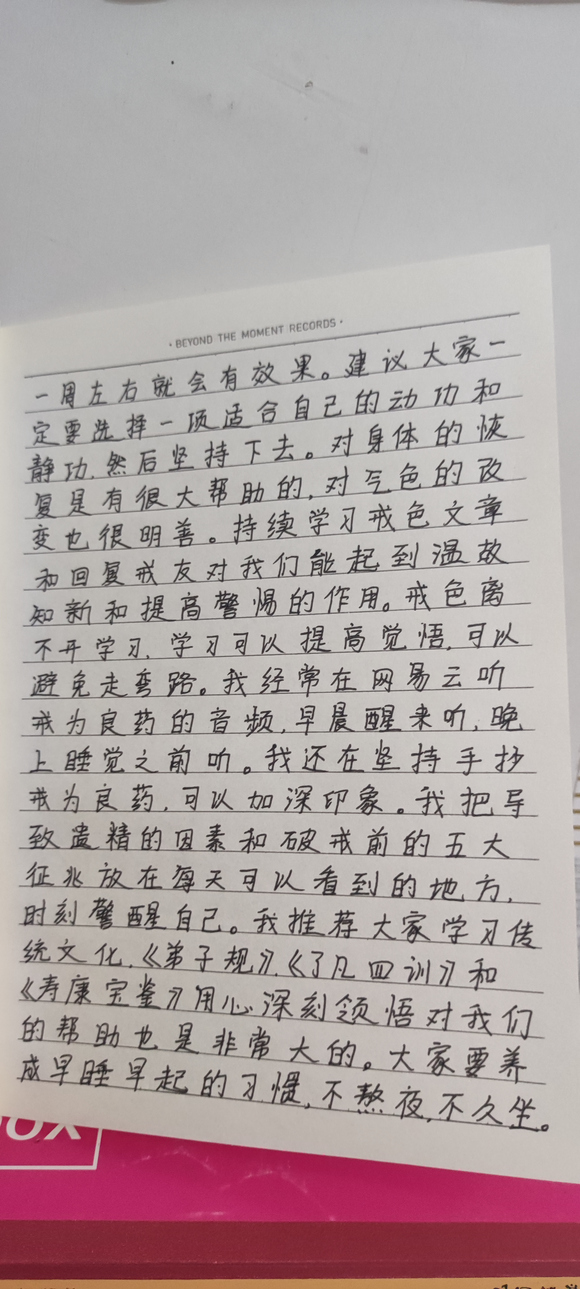 · BEYOND THE MOMENT RECORDS ·
一周左右就会有效果。建议大家一
定要选择一项适合自己的动功和
静功,然后坚持下去。对身体的恢
复是有很大帮助的,对气色的改
变也很明善。持续学习戒色文章
和回复戒友对我们能起到温故
知新和提高警惕的作用。戒色离
不开学习,学习可以提高觉悟,可以
避免走弯路。我经常在网易云听
戒为良药的音频,早晨醒来听,晚
上睡觉之前听。我还在坚持手抄
戒为良药,可以加深印象。我把导
致遗精的因素和破戒前的五大
征兆放在每天可以看到的地方,
时刻警醒自己。我推荐大家学习传
统文化,《弟子规》,《了凡四训》和
《寿康宝鉴》用心深刻领悟对我们
的帮助也是非常大的。大家要养
成早睡早起的习惯,不熬夜,不久坐。
OX